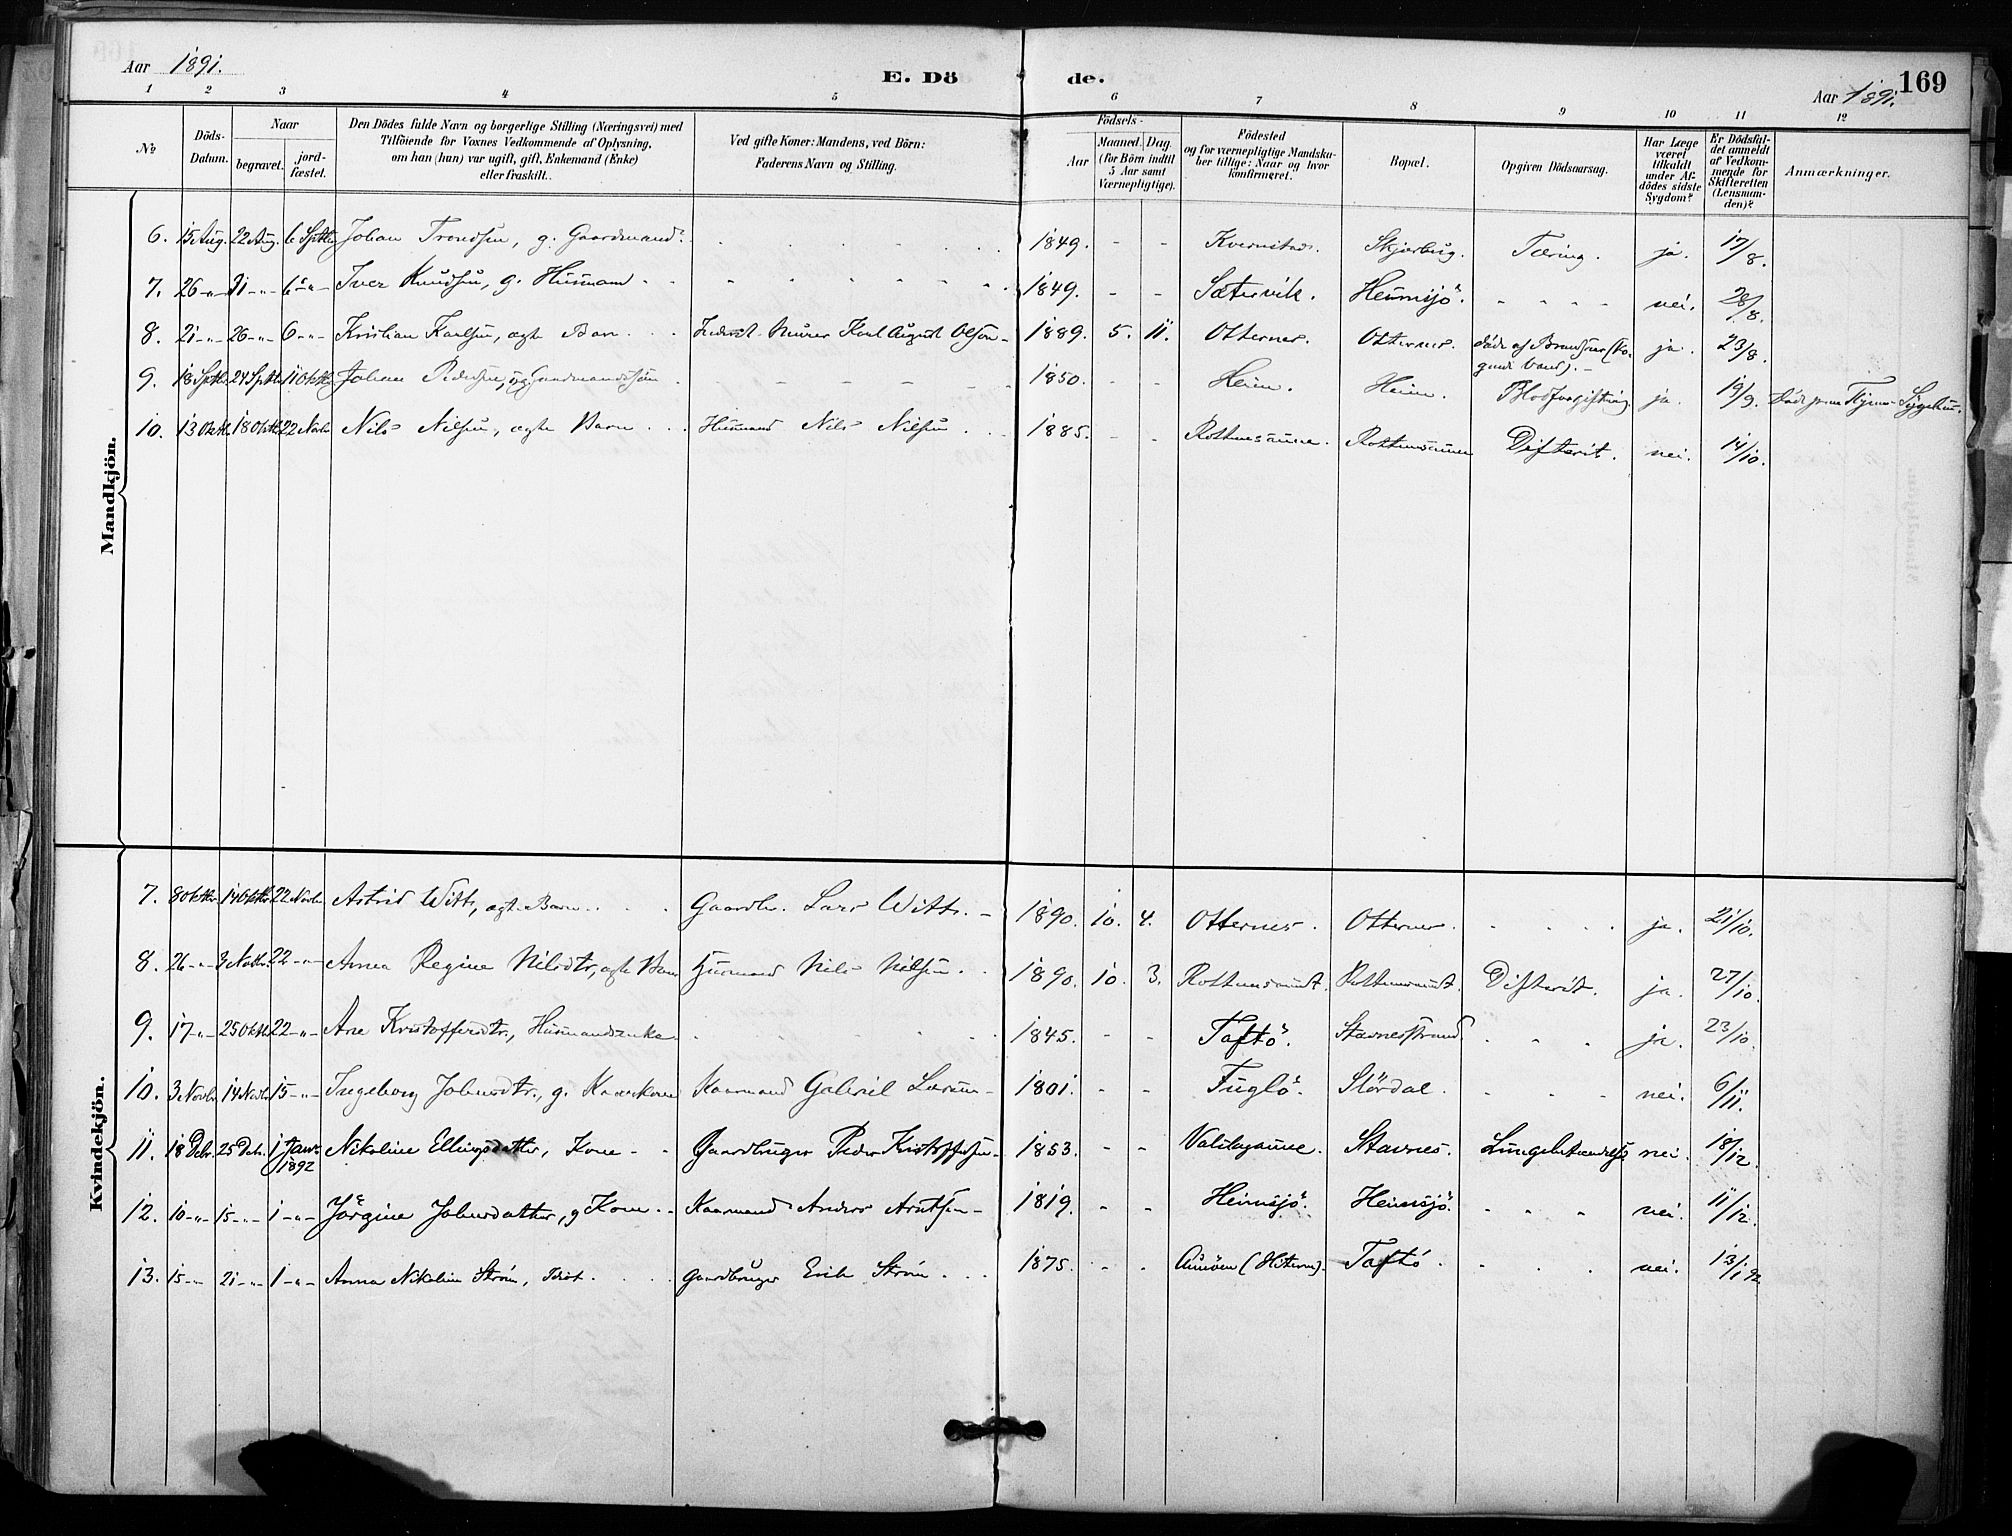 Aar 1891.
E. Dö de.
Aar 1891.
169
1 2 3 4 5 6 7 8 9 10 11 12
No
Döds-Datum.
Naar
begravet.
jordfæstet.
Den Dödes fulde Navn og borgerlige Stilling (Næringsvei) med
Tilföiende for Voxnes Vedkommende af Oplysning,
om han (hun) var ugift, gift, Enkemand (Enke)
eller fraskilt.
Ved gifte Koner: Mandens, ved Börn:
Faderens Navn og Stilling.
Födsels-
Aar
Maaned. Dag.
(for Börn indtil
5 Aar samt
Værnepligtige).
Födested
og for værnepligtige Mandska-
ber tillige: Naar og hvor
konfirmeret.
Bopæl.
Opgiven Dödsaarsag.
Har Læge
været
tilkaldt
under Af-
dödes sidste
Sygdom?
Er Dödsfal-
det anmeldt
af Vedkom-
mende for
Skifteretten
(Lensman-
den)?
Anmærkninger.
Mandkjön.
6. 15 Aug. 22 Aug. 6 Septbr Johan Trondsen, g. Gaardmand. 1849. - - Skjærbug. Tæring. ja. 17/8.
7. 26 -"- 31 -"- 6 -"- Iver Knudsen, g. Husmand 1849. - - Sætervik. Heimsjö. nei. 28/8.
8. 21 -"- 26 -"- 6 -"- Kristian Karlsen, ægte Barn Karl August Olsen 1889. 5. 11. Otternes. Otternes. ja. 23/8.
9. 18 Septbr 24 Septbr 11 Oktbr Johan Pedersen, 1850. Heim. Heim. Blodforgiftning. ja. 19/9.
10. 13 Oktbr 18 Oktbr 22 Novbr Nils Nilsen, ægte Barn Husmand Nils Nilsen 1885. - - Difterit. nei. 14/10.
Kvindekjön.
7. 8 Oktbr 14 Oktbr 22 Novbr Astrid Witts, ægte Barn Gaardbr. Lars Witts. 1890. 10. 4. Otternes. Otternes. ja. 21/10.
8. 26 -"- 3 Novbr. 22 -"- Anna Regine Nilsdtr, ægte Barn Husmand Nils Nilsen. 1890. 10. 3. Difterit. ja. 27/10.
9. 17 -"- 25 Oktbr 22 -"- Ane Kristoffersdtr., Husmandsenke 1845. - - Taftö. Stavnesstrand. ja. 23/10.
10. 3 Novbr. 14 Novbr. 15 -"- Ingeborg Johnsdtr., g. Kaarmand Gabriel 1801. - - Fuglö. Stördal. nei. 6/11.
11. 18 Debr. 25 Debr. 1 Janr. 1892 Nikoline Ellingsdatter, Kone Gaardbruger Peder Kristoffersen 1853. - - Stavnes. Lungebetændelse nei. 18/12.
12. 10 -"- 15 -"- 1 -"- Jörgine Johnsdatter, g Kone Kaarmand Anders Arntsen 1819. - - Heimsjö. Heimsjö. nei. 11/12.
13. 15 -"- 21 -"- 1 -"- Anna Nikoline Ström, Idiot. Gaardbruger Erik Ström 1875. - - (Hiteren). Taftö. nei. 13/1 92.